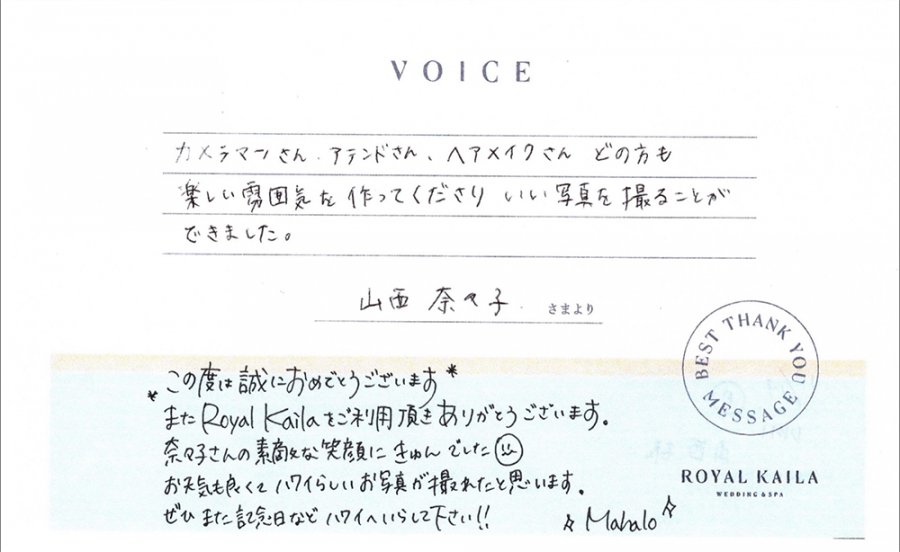 VOICE
カメラマンさん、アテンドさん、ヘアメイクさん どの方も
楽しい雰囲気を作ってくださり いい写真を撮ることが
できました。
山西 奈々子 さまより
BEST THANK YOU MESSAGE
*この度は誠におめでとうございます*
また Royal Kaila をご利用頂き ありがとうございます。
奈々子さんの素敵な笑顔に きゅんでした
お天気も良くて ハワイらしいお写真が撮れたと思います。
ぜひ また 記念日など ハワイへいらして下さい!!
Mahalo
ROYAL KAILA
WEDDING & SPA